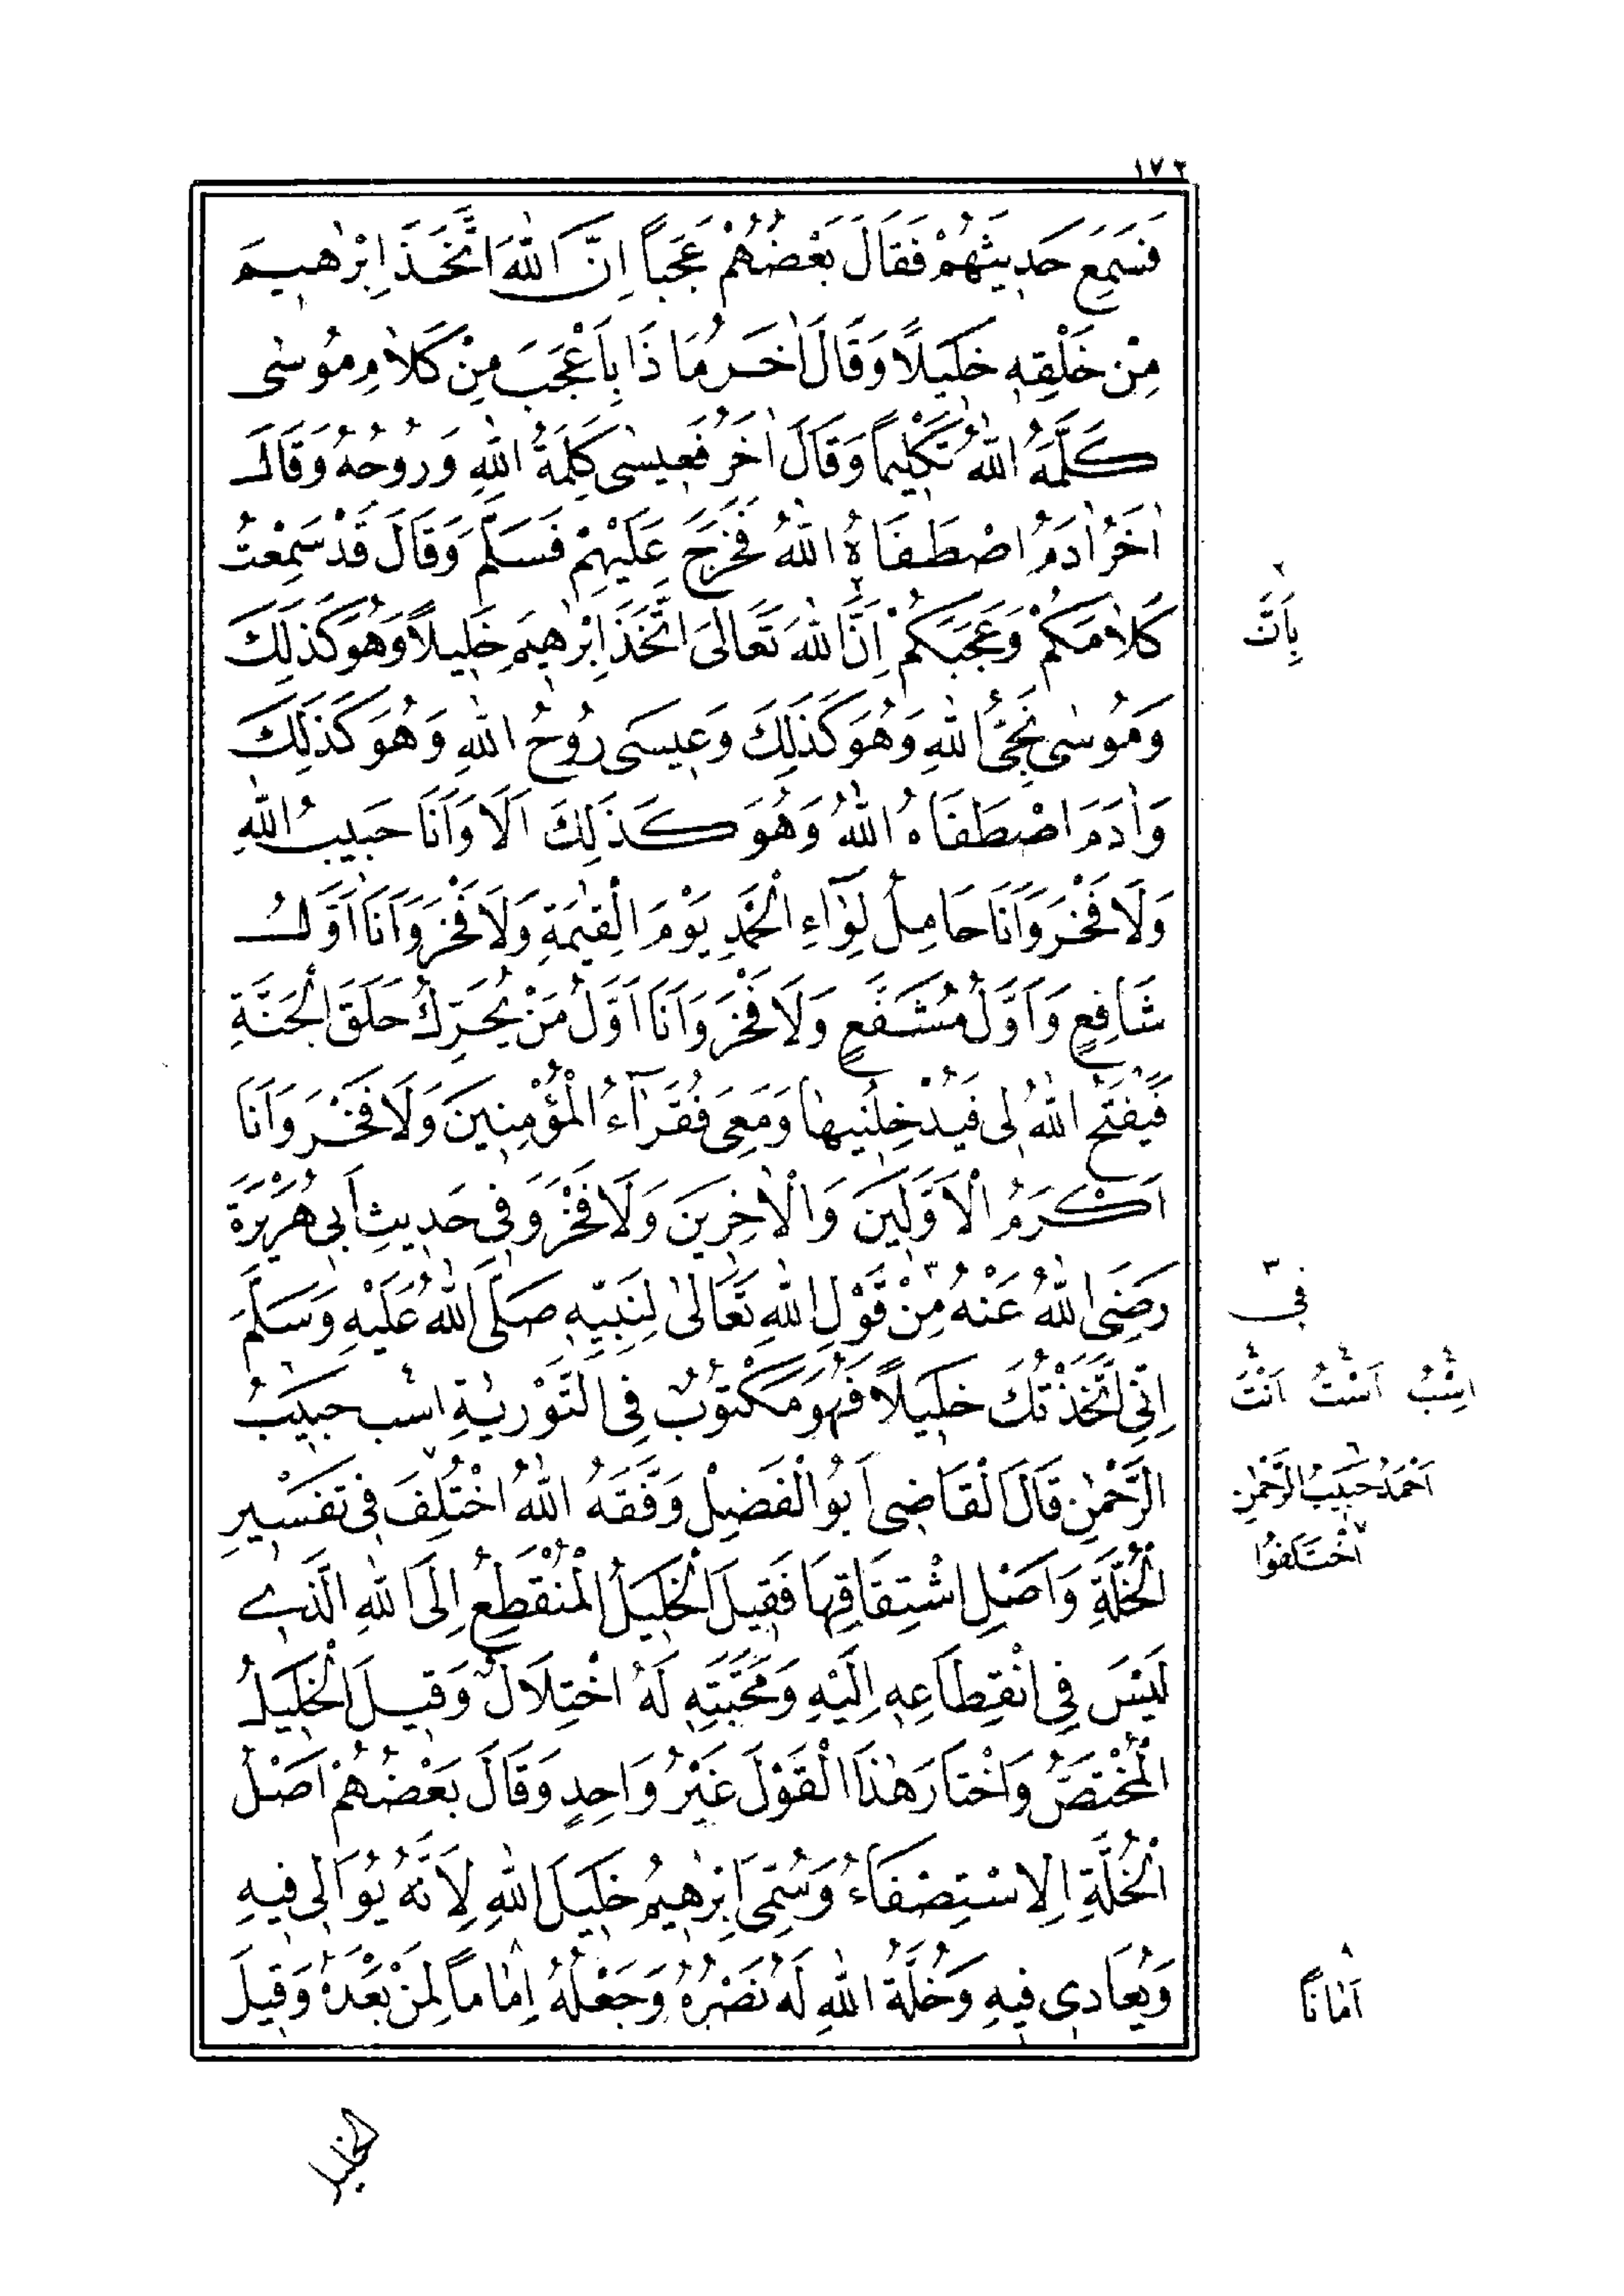 ١٧٢
فَسَمِعَ حَدِيثَهُمْ فَقَالَ بَعْضُهُمْ عَجَباً اِنَّ اللهَ اتَّخَذَ اِبْرٰهِيمَ
مِنْ خَلْقِهِ خَلِيلًا وَقَالَ اٰخَرُ مَا ذَا بِاَعْجَبَ مِنْ كَلَامِ مُوسٰى
كَلَّمَهُ اللهُ تَكْلِيماً وَقَالَ اٰخَرُ فَعِيسٰى كَلِمَةُ اللهِ وَرُوحُهُ وَقَالَ
اٰخَرُ اٰدَمُ اصْطَفَاهُ اللهُ فَخَرَجَ عَلَيْهِمْ فَسَلَّمَ وَقَالَ قَدْ سَمِعْتُ
كَلَامَكُمْ وَعَجَبَكُمْ اِنَّ ٢ اللهَ تَعَالَى اتَّخَذَ اِبْرٰهِيمَ خَلِيلاً وَهُوَ كَذٰلِكَ
وَمُوسٰى نَجِيُّ اللهِ وَهُوَ كَذٰلِكَ وَعِيسَى رُوحُ اللهِ وَهُوَ كَذٰلِكَ
وَاٰدَمَ اصْطَفَاهُ اللهُ وَهُوَ كَذٰلِكَ اَلَا وَاَنَا حَبِيبُ اللهِ
وَلَا فَخْرَ وَاَنَا حَامِلُ لِوَآءِ الْحَمْدِ يَوْمَ الْقِيٰمَةِ وَلَا فَخْرَ وَاَنَا اَوَّلُ
شَافِعٍ وَاَوَّلُ مُشَفَّعٍ وَلَا فَخْرَ وَاَنَا اَوَّلُ مَنْ يُحَرِّكُ حَلَقَ الْجَنَّةِ
فَيَفْتَحُ اللهُ لِى فَيُدْخِلُنِيهَا وَمَعِى فُقَرَآءُ الْمُؤْمِنِينَ وَلَا فَخْرَ وَاَنَا
اَكْرَمُ الْاَوَّلِينَ وَالْاٰخِرِينَ وَلَا فَخْرَ وَفِى حَدِيثِ اَبِى هُرَيْرَةَ
رَضِىَ اللهُ عَنْهُ مِنْ ٣ قَوْلِ اللهِ تَعَالٰى لِنَبِيِّهِ صَلَّى اللهُ عَلَيْهِ وَسَلَّمَ
اِنِّى اتَّخَذْتُكَ خَلِيلاً فَهُوَ مَكْتُوبٌ فِى التَّوْرٰيةِ ٤ اسب ٦ حَبِيبُ
الرَّحْمٰنِ قَالَ الْقَاضِى اَبُو الْفَضْلِ وَفَّقَهُ اللهُ اخْتُلِفَ ٧ فِى تَفْسِيرِ
الْخُلَّةِ وَاَصْلِ اشْتِقَاقِهَا فَقِيلَ الْخَلِيلُ الْمُنْقَطِعُ اِلَى اللهِ الَّذِى
لَيْسَ فِى انْقِطَاعِهِ اِلَيْهِ وَمَحَبَّتِهِ لَهُ اخْتِلَالٌ وَقِيلَ الْخَلِيلُ
الْمُخْتَصُّ وَاخْتَارَ هٰذَا الْقَوْلَ غَيْرُ وَاحِدٍ وَقَالَ بَعْضُهُمْ اَصْلُ
الْخُلَّةِ الِاسْتِصْفَاءُ وَسُمِّىَ اِبْرٰهِيمُ خَلِيلَ اللهِ لِاَنَّهُ يُوَالِى فِيهِ
وَيُعَادِى فِيهِ وَخُلَّةُ اللهِ لَهُ نَصْرُهُ وَجَعْلُهُ ٨ اِمَاماً لِمَنْ بَعْدَهُ وَقِيلَ
٢ بِاَنَّ
٣ فِى
٤ اسِْبُ ٤ اَسْتُ ٤ اَنْتُ
٦ اَحْمَدُ حَبِيبُ الرَّحْمٰنِ
٧ اخْتَلَفُوا
٨ اَمَاناً
الخليل